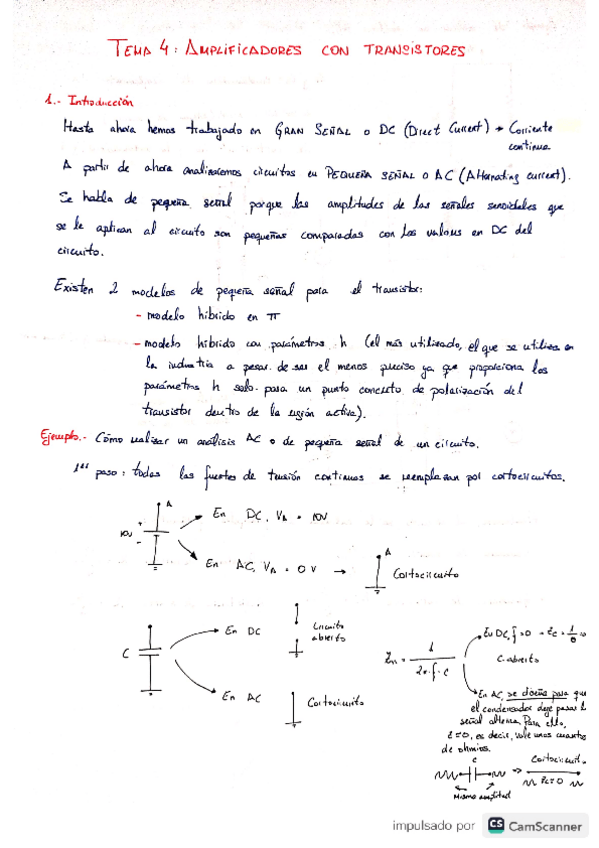 TEMA 4: AMPLIFICADORES CON TRANSISTORES
1.- Introducción
Hasta ahora hemos trabajado en GRAN SEÑAL o DC (Direct Current) → Corriente
continua
A partir de ahora analizaremos circuitos en PEQUEÑA SEÑAL o AC (Alternating current).
Se habla de pequeña señal porque las amplitudes de las señales senoidales que
se le aplican al circuito son pequeñas comparadas con los valores en DC del
circuito.
Existen 2 modelos de pequeña señal para el transistor:
- modelo híbrido en π
- modelo híbrido con parámetros h (el más utilizado, el que se utiliza en
la industria a pesar de ser el menos preciso ya que proporciona los
parámetros h solo para un punto concreto de polarización del
transistor dentro de la región activa).
Ejemplo.- Cómo realizar un análisis AC o de pequeña señal de un circuito.
1er paso: todas las fuentes de tensión continuas se reemplazan por cortocircuitos.
A
10V
+
-
En DC, VA = 10V
En AC, VA = 0V →
A
Cortocircuito
C
En DC
Circuito
abierto
En AC
Cortocircuito
1
2π·f·C
En DC, f=0
C. abierto
En AC, se diseña para que
el condensador deje pasar la
señal alterna. Para ello,
es decir, vale unos cuantos
de ohmios.
C
Mismo amplitud
Cortocircuit.
impulsado por CS CamScanner